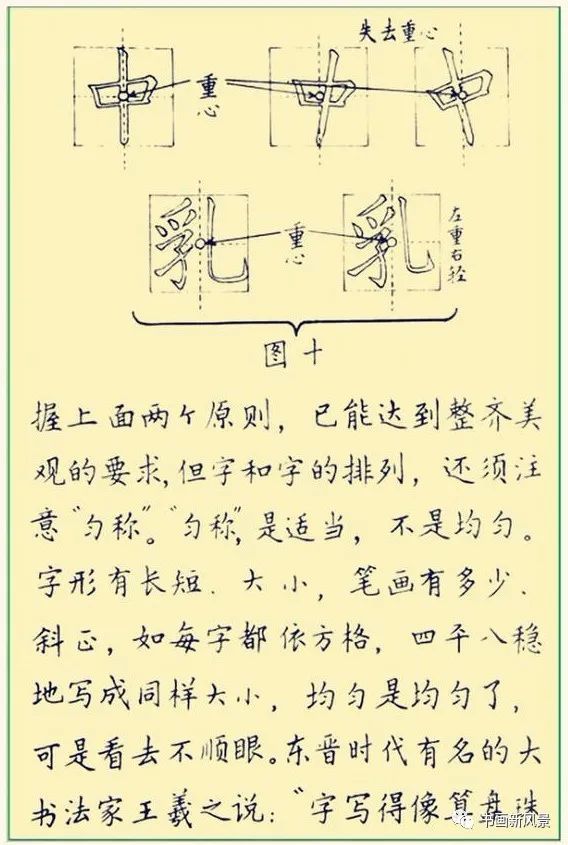 失去重心
重心
重心
左重右轻
图十
握上面两个原则，已能达到整齐美
观的要求，但字和字的排列，还须注
意“匀称”。“匀称”，是适当，不是均匀。
字形有长短．大小，笔画有多少．
斜正，如每字都依方格，四平八稳
地写成同样大小，均匀是均匀了，
可是看去不顺眼。东晋时代有名的大
书法家王羲之说：“字写得像算盘珠
中 中 中
乳 乳
书画新风景